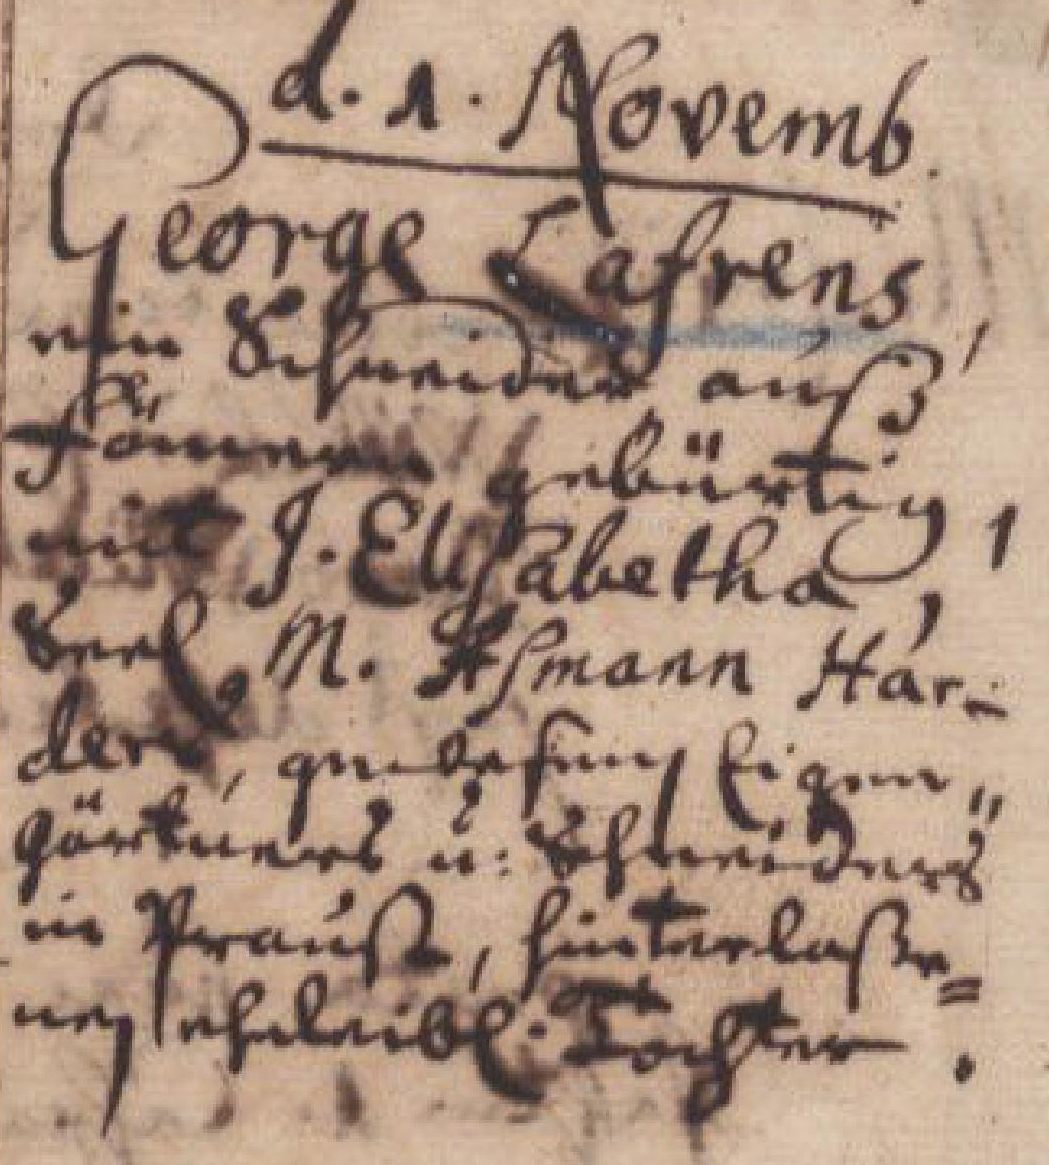 d. 1. Novemb.
George Lafrens,
ein Schneider auß
gebürtig,
mit J. Elisabetha,
Seel. M. Asmann Har-
ders, gewesenen Eigen„
gärtners u: Schneiders
in Praust, hinterlaße=
nen eheleibl. Tochter.